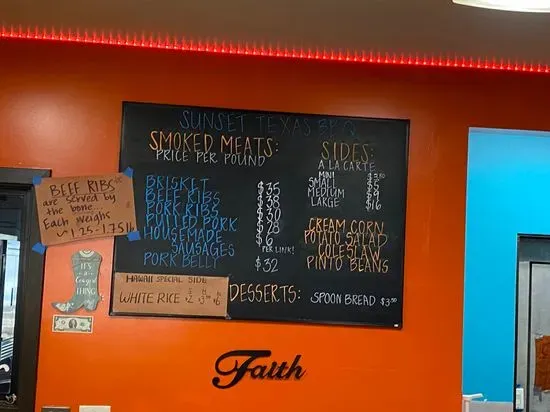 SUNSET TEXAS BBQ
SMOKED MEATS:
PRICE PER POUND
BRISKET $35
BEEF RIBS $38
PORK RIBS $30
PULLED PORK $28
HOUSEMADE SAUSAGES $6 PER LINK!
PORK BELLY $32
SIDES:
A LA CARTE
MINI $3.50
SMALL $5
MEDIUM $9
LARGE $16
CREAM CORN
POTATO SALAD
KOLESLAW
PINTO BEANS
DESSERTS: SPOON BREAD $3.50
BEEF RIBS
are served by
the bone...
Each weighs
~1.25-1.75 lb
HAWAII SPECIAL SIDE
WHITE RICE
IT'S
a
Cowgirl
THING
Faith